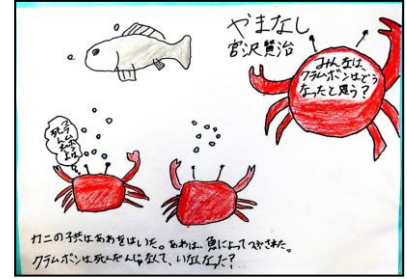 やまなし
宮沢賢治
みんなは、
クラムボンはどう
なったと思う?
クラムボンは
死んだよ
カニの子供はあわをはいた。あわは、魚によってつぶされた。
クラムボンは死んだんじゃなくて、いなくなった?